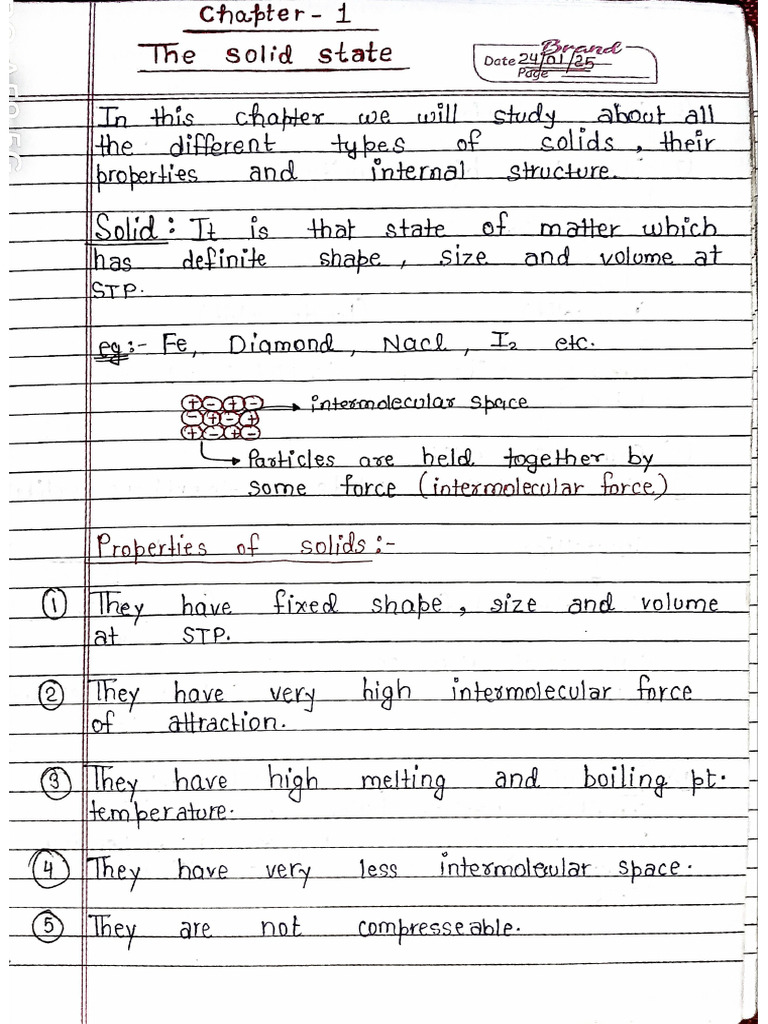 Chapter - 1
The solid state
Brand
Date 24/01/25
Page
In this chapter we will study about all
the different types of solids, their
properties and internal structure.
Solid: It is that state of matter which
has definite shape, size and volume at
STP.
eg:- Fe, Diamond, Nacl, I₂ etc.
+ - + - → intermolecular space
- + - +
+ - + -
→ Particles are held together by
some force (intermolecular force)
Properties of solids:-
① They have fixed shape, size and volume
at STP.
② They have very high intermolecular force
of attraction.
③ They have high melting and boiling pt.
temperature.
④ They have very less intermolecular space.
⑤ They are not compresseable.